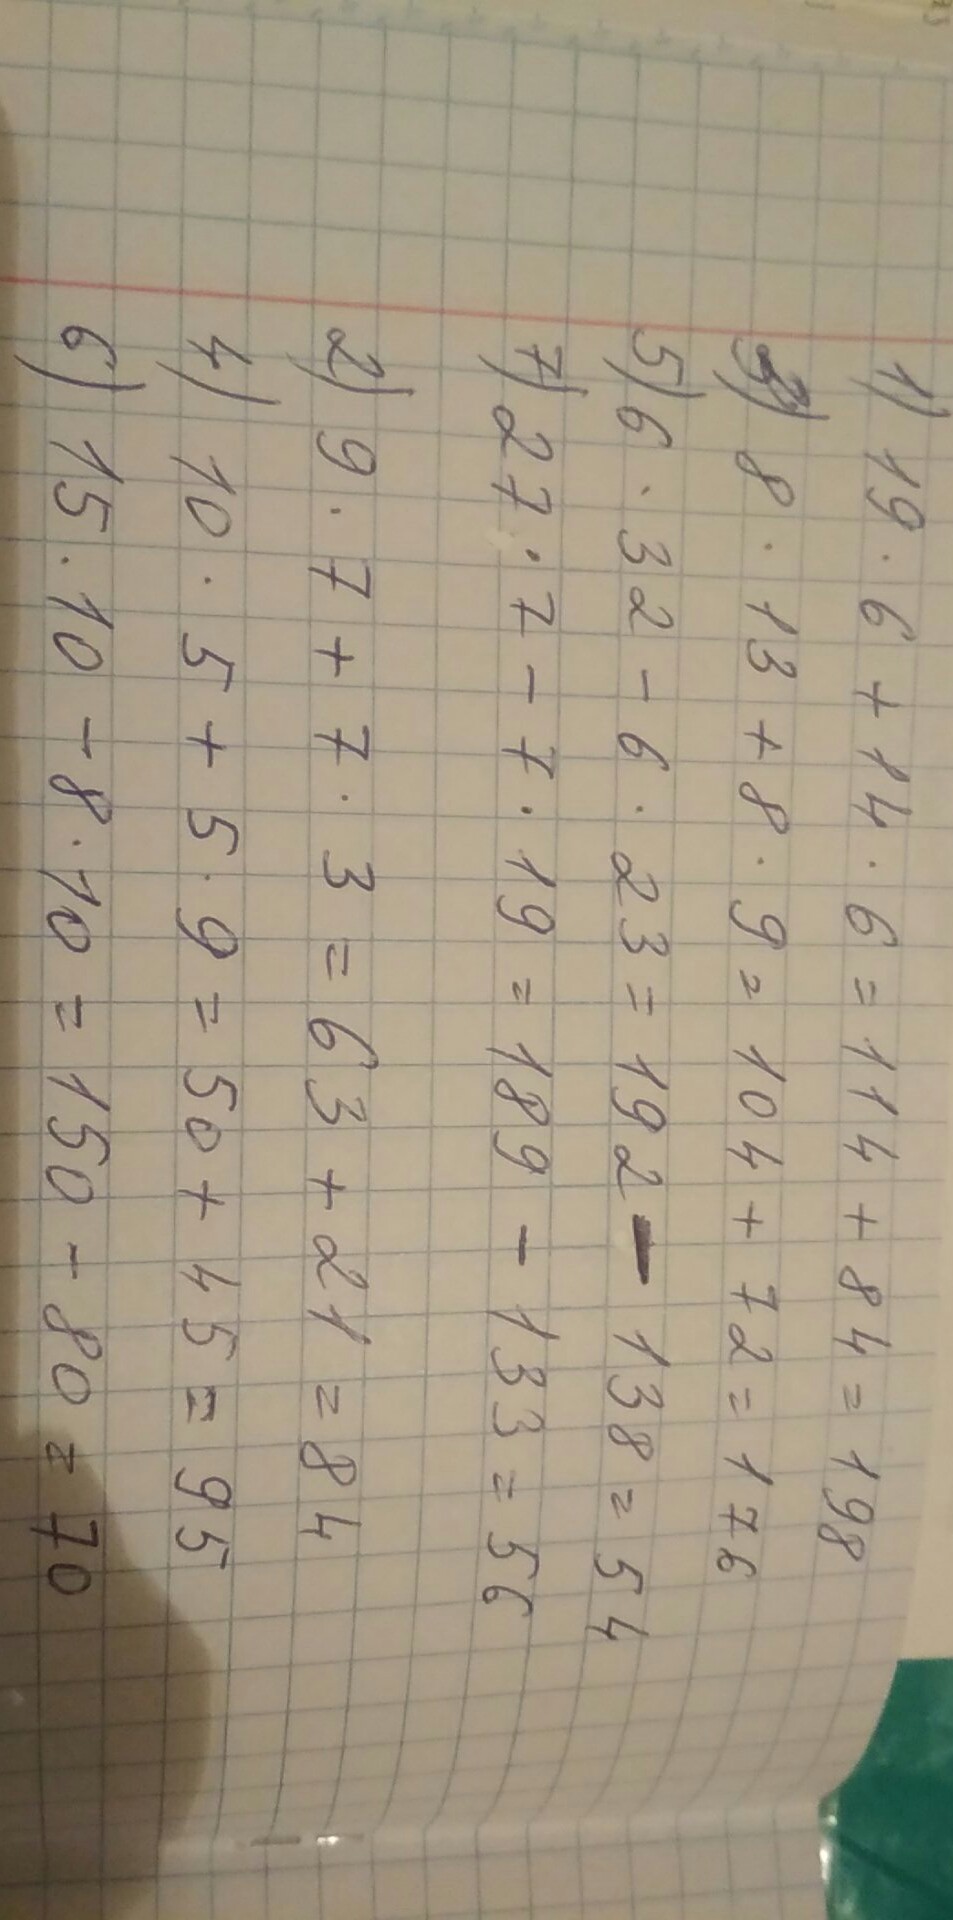 1) 19 · 6 + 14 · 6 = 114 + 84 = 198
3) 8 · 13 + 8 · 9 = 104 + 72 = 176
5) 6 · 32 - 6 · 23 = 192 - 138 = 54
7) 27 · 7 - 7 · 19 = 189 - 133 = 56
2) 9 · 7 + 7 · 3 = 63 + 21 = 84
4) 10 · 5 + 5 · 9 = 50 + 45 = 95
6) 15 · 10 - 8 · 10 = 150 - 80 = 70